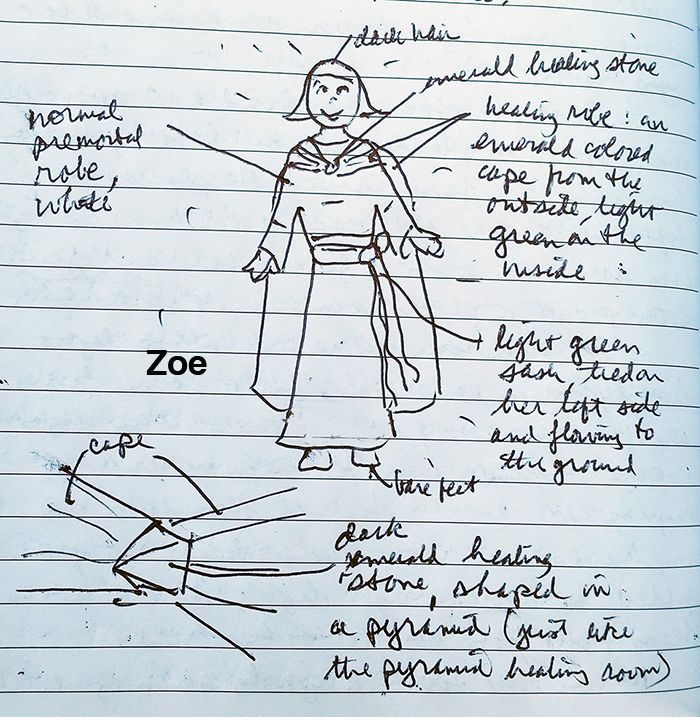 dark hair
emerald healing stone
normal
premortal
robe,
white
healing robe: an
emerald colored
cape from the
outside, light
green on the
inside :
light green
sash, tied on
her left side
and flowing to
the ground
Zoe
bare feet
cape
dark
emerald healing
stone, shaped in
a pyramid (just like
the pyramid healing room)